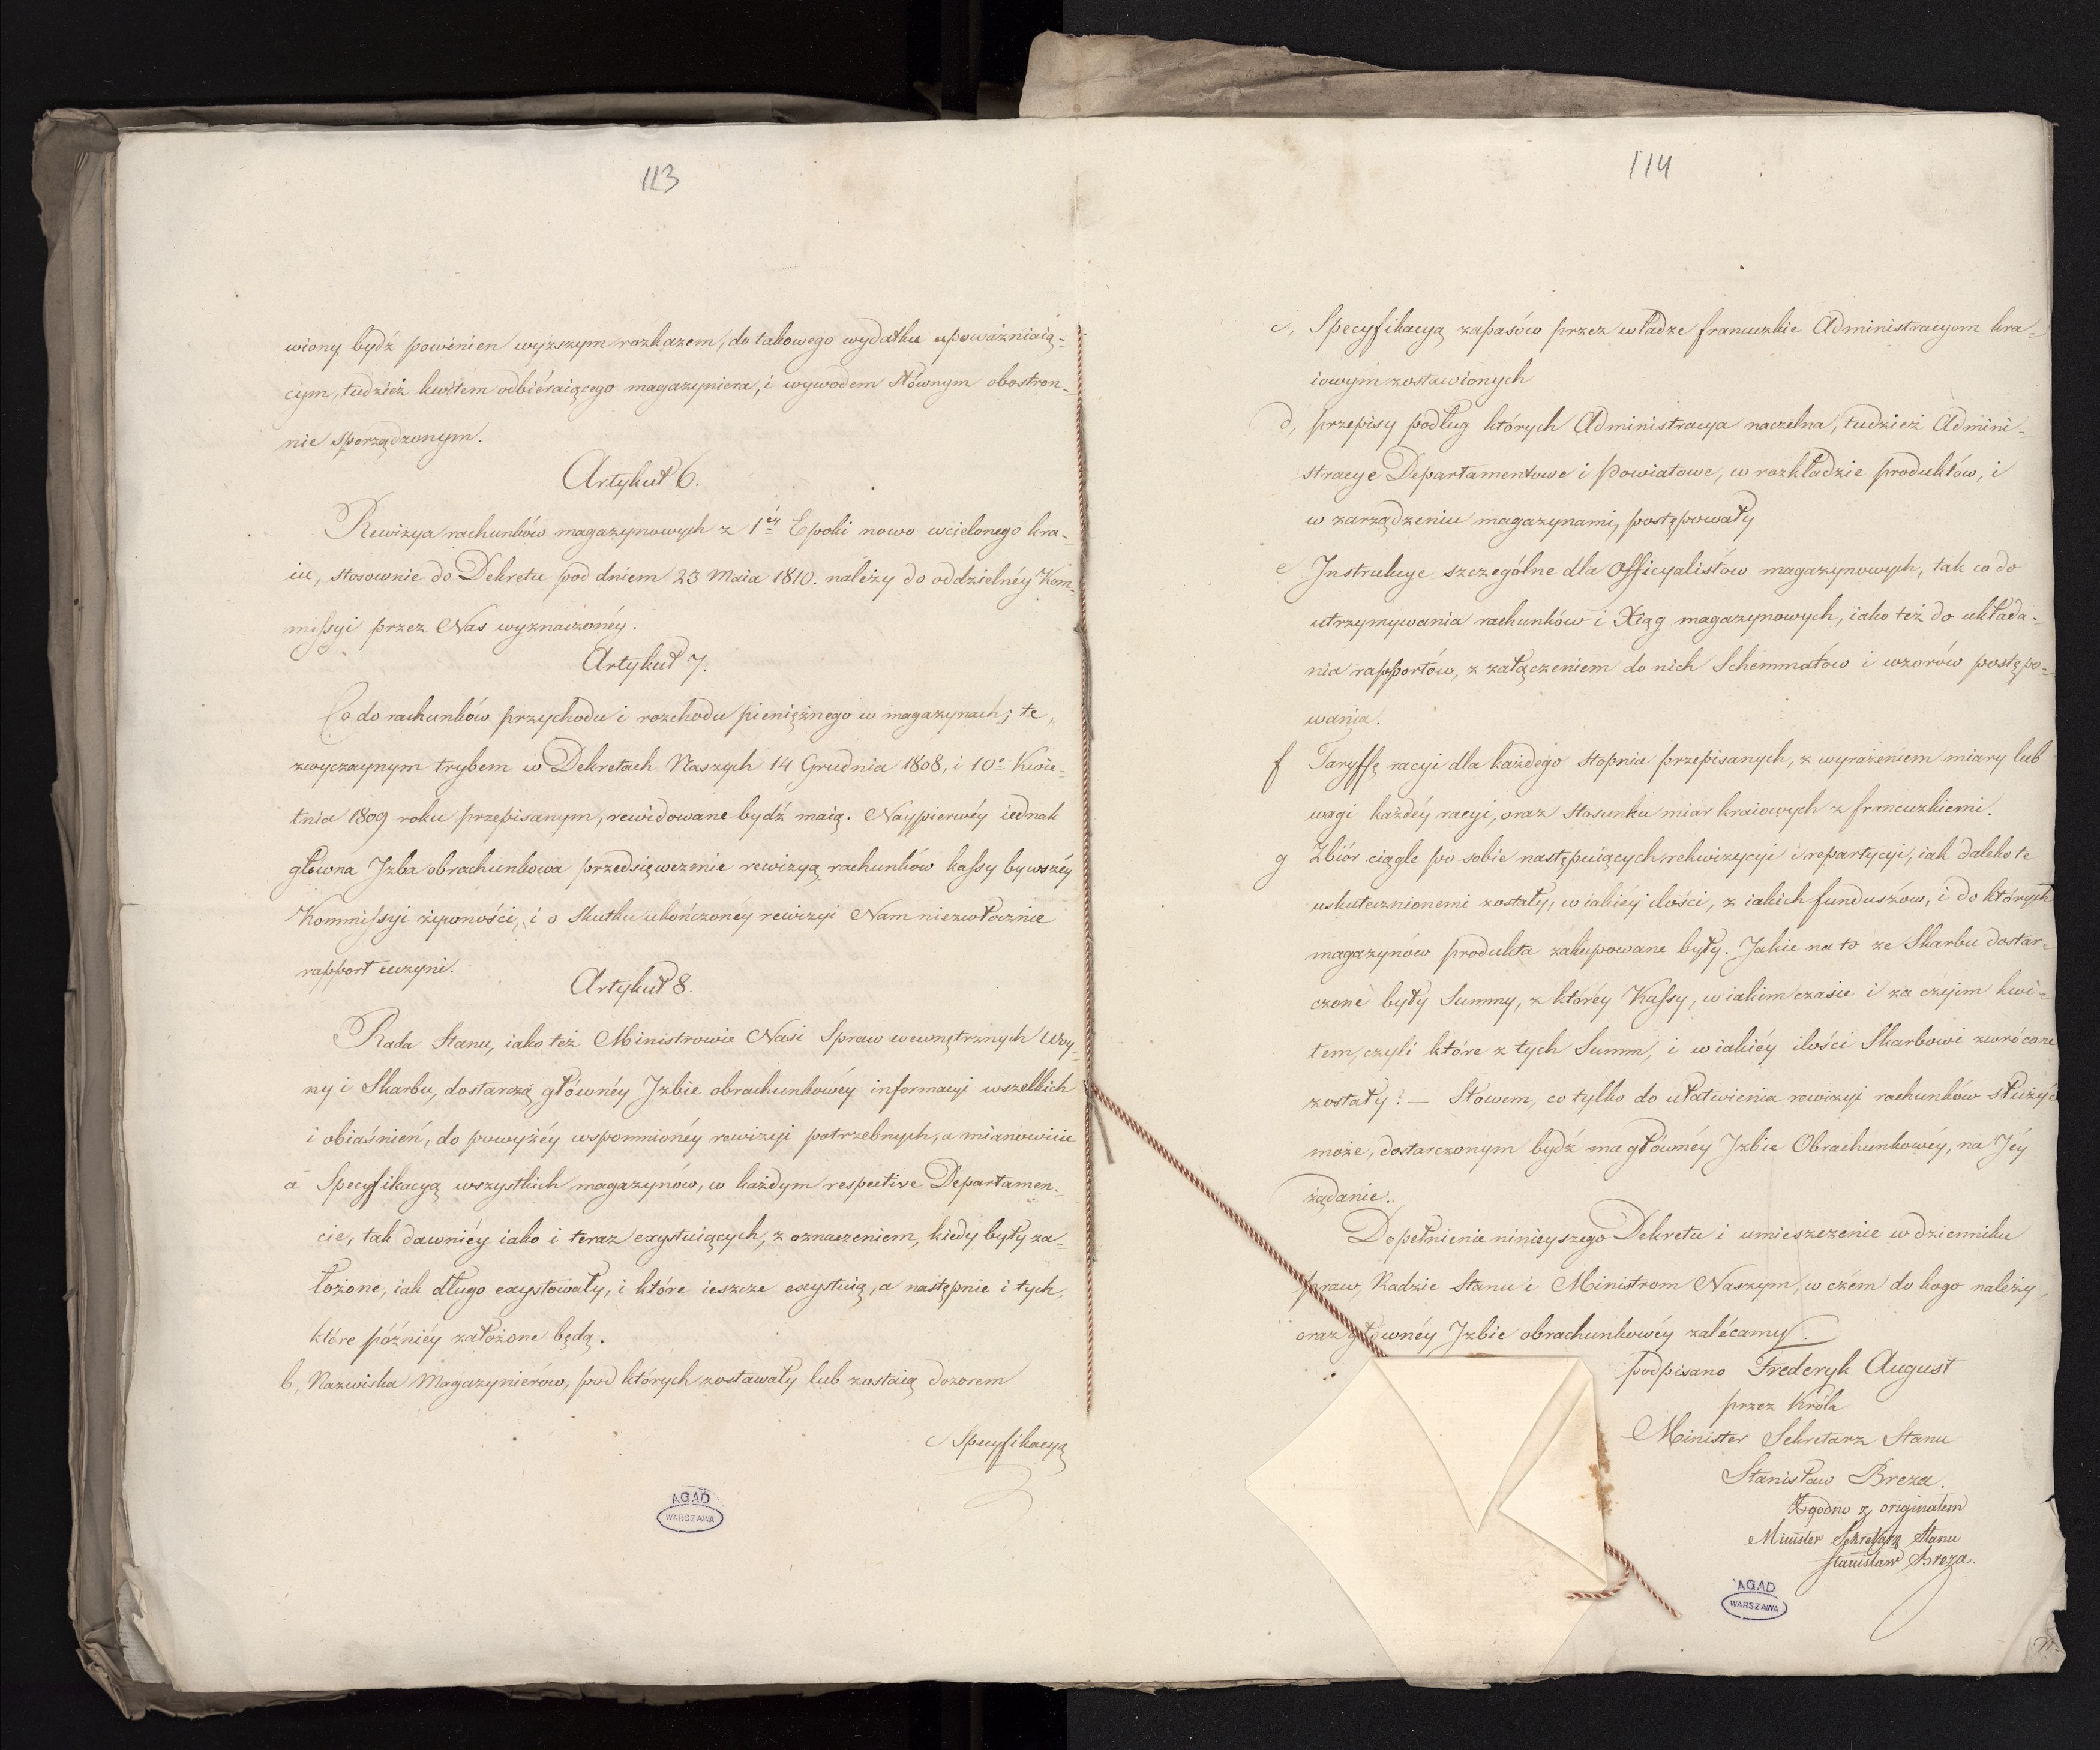 113
wiony bydź powinien wyższym rozkazem, do takowego wydatku upoważniaią-
cym, tudzież kwitem odbiéraiącego magazyniera, i wywodem słównym obostron-
nie sporządzonym.
Artykuł 6.
Rewizya rachunków magazynowych z 1éy Epoki nowo wcielonego kra-
iu, stosownie do Dekretu pod dniem 23 Maia 1810. należy do oddzielnéy Kom-
missyi przez Nas wyznaczonéy.
Artykuł 7.
Co do rachunków przychodu i rozchodu pieniężnego w magazynach; te,
zwyczaynym trybem w Dekretach Naszych 14 Grudnia 1808, i 10o Kwie-
tnia 1809 roku przepisanym, rewidowane bydź maią. Naypierwéy iednak
głowna Jzba obrachunkowa przedsięwezmie rewizyą rachunków kassy bywszéy
Kommissyi żywności, i o skutku ukończonéy rewizyi Nam niezwłocznie
rapport uczyni.
Artykuł 8.
Rada Stanu, iako też Ministrowie Nasi Spraw wewnętrznych Woy-
ny i Skarbu, dostarczą głównéy Jzbie obrachunkowéy informacyi wszelkich
i obiaśnień, do powyżéy wspomnionéy rewizyi potrzebnych, a mianowicie
a Specyfikacyą wszystkich magazynów, w każdym respective Departamen-
cie, tak dawniéy iako i teraz exystuiących, z oznaczeniem, kiedy były za-
łożone, iak długo exystowały, i które ieszcze exystuią, a następnie i tych,
które późniéy założone będą.
b, Nazwiska Magazynierów, pod których zostawały lub zostaią dozorem
c Specyfikacyą
AGAD
WARSZAWA
114
c, Specyfikacyą zapasów przez władze francuzkie Administracyom kra-
iowym zostawionych
d, przepisy podług których Administracya naczelna, tudzież Admini-
stracye Departamentowe i Powiatowe, w rozkładzie produktów, i
w zarządzeniu magazynami, postępowały
e Jnstrukcye szczególne dla Officyalistow magazynowych, tak co do
utrzymywania rachunków i Xiąg magazynowych, iako też do układa-
nia rapportów, z załączeniem do nich Schemmatów i wzorów postępo-
wania.
f Taryffę racyi dla każdego stopnia przepisanych, z wyrażeniem miary lub
wagi każdéy racyi, oraz stosunku miar kraiowych z francuzkiemi.
g Zbiór ciągle po sobie następuiących rekwizycyi i repartycyi, iak daleko te
uskutecznionemi zostały, w iakiéy ilości, z iakich funduszów, i do których
magazynów produkta zakupowane były. Jakie na to ze Skarbu dostar-
czone były Summy, z któréy Kassy, w iakim czasie i za czyim kwi-
tem, czyli które z tych Summ, i w iakiéy ilości Skarbowi zwrócone
zostały? — Słowem, co tylko do ułatwienia rewizyi rachunków służyć
może, dostarczonym bydź ma głównéy Jzbie Obrachunkowéy, na Jéy
żądanie.
Dopełnienie ninieyszego Dekretu i umieszczenie w dzienniku
praw, Radzie Stanu i Ministrom Naszym, w czém do kogo należy,
oraz głównéy Jzbie obrachunkowéy zalécamy.
podpisano Frederyk August
przez Króla
Minister Sekretarz Stanu
Stanisław Breza.
Zgodno z originałem
Minister Sekretarz Stanu
Stanisław Breza.
AGAD
WARSZAWA